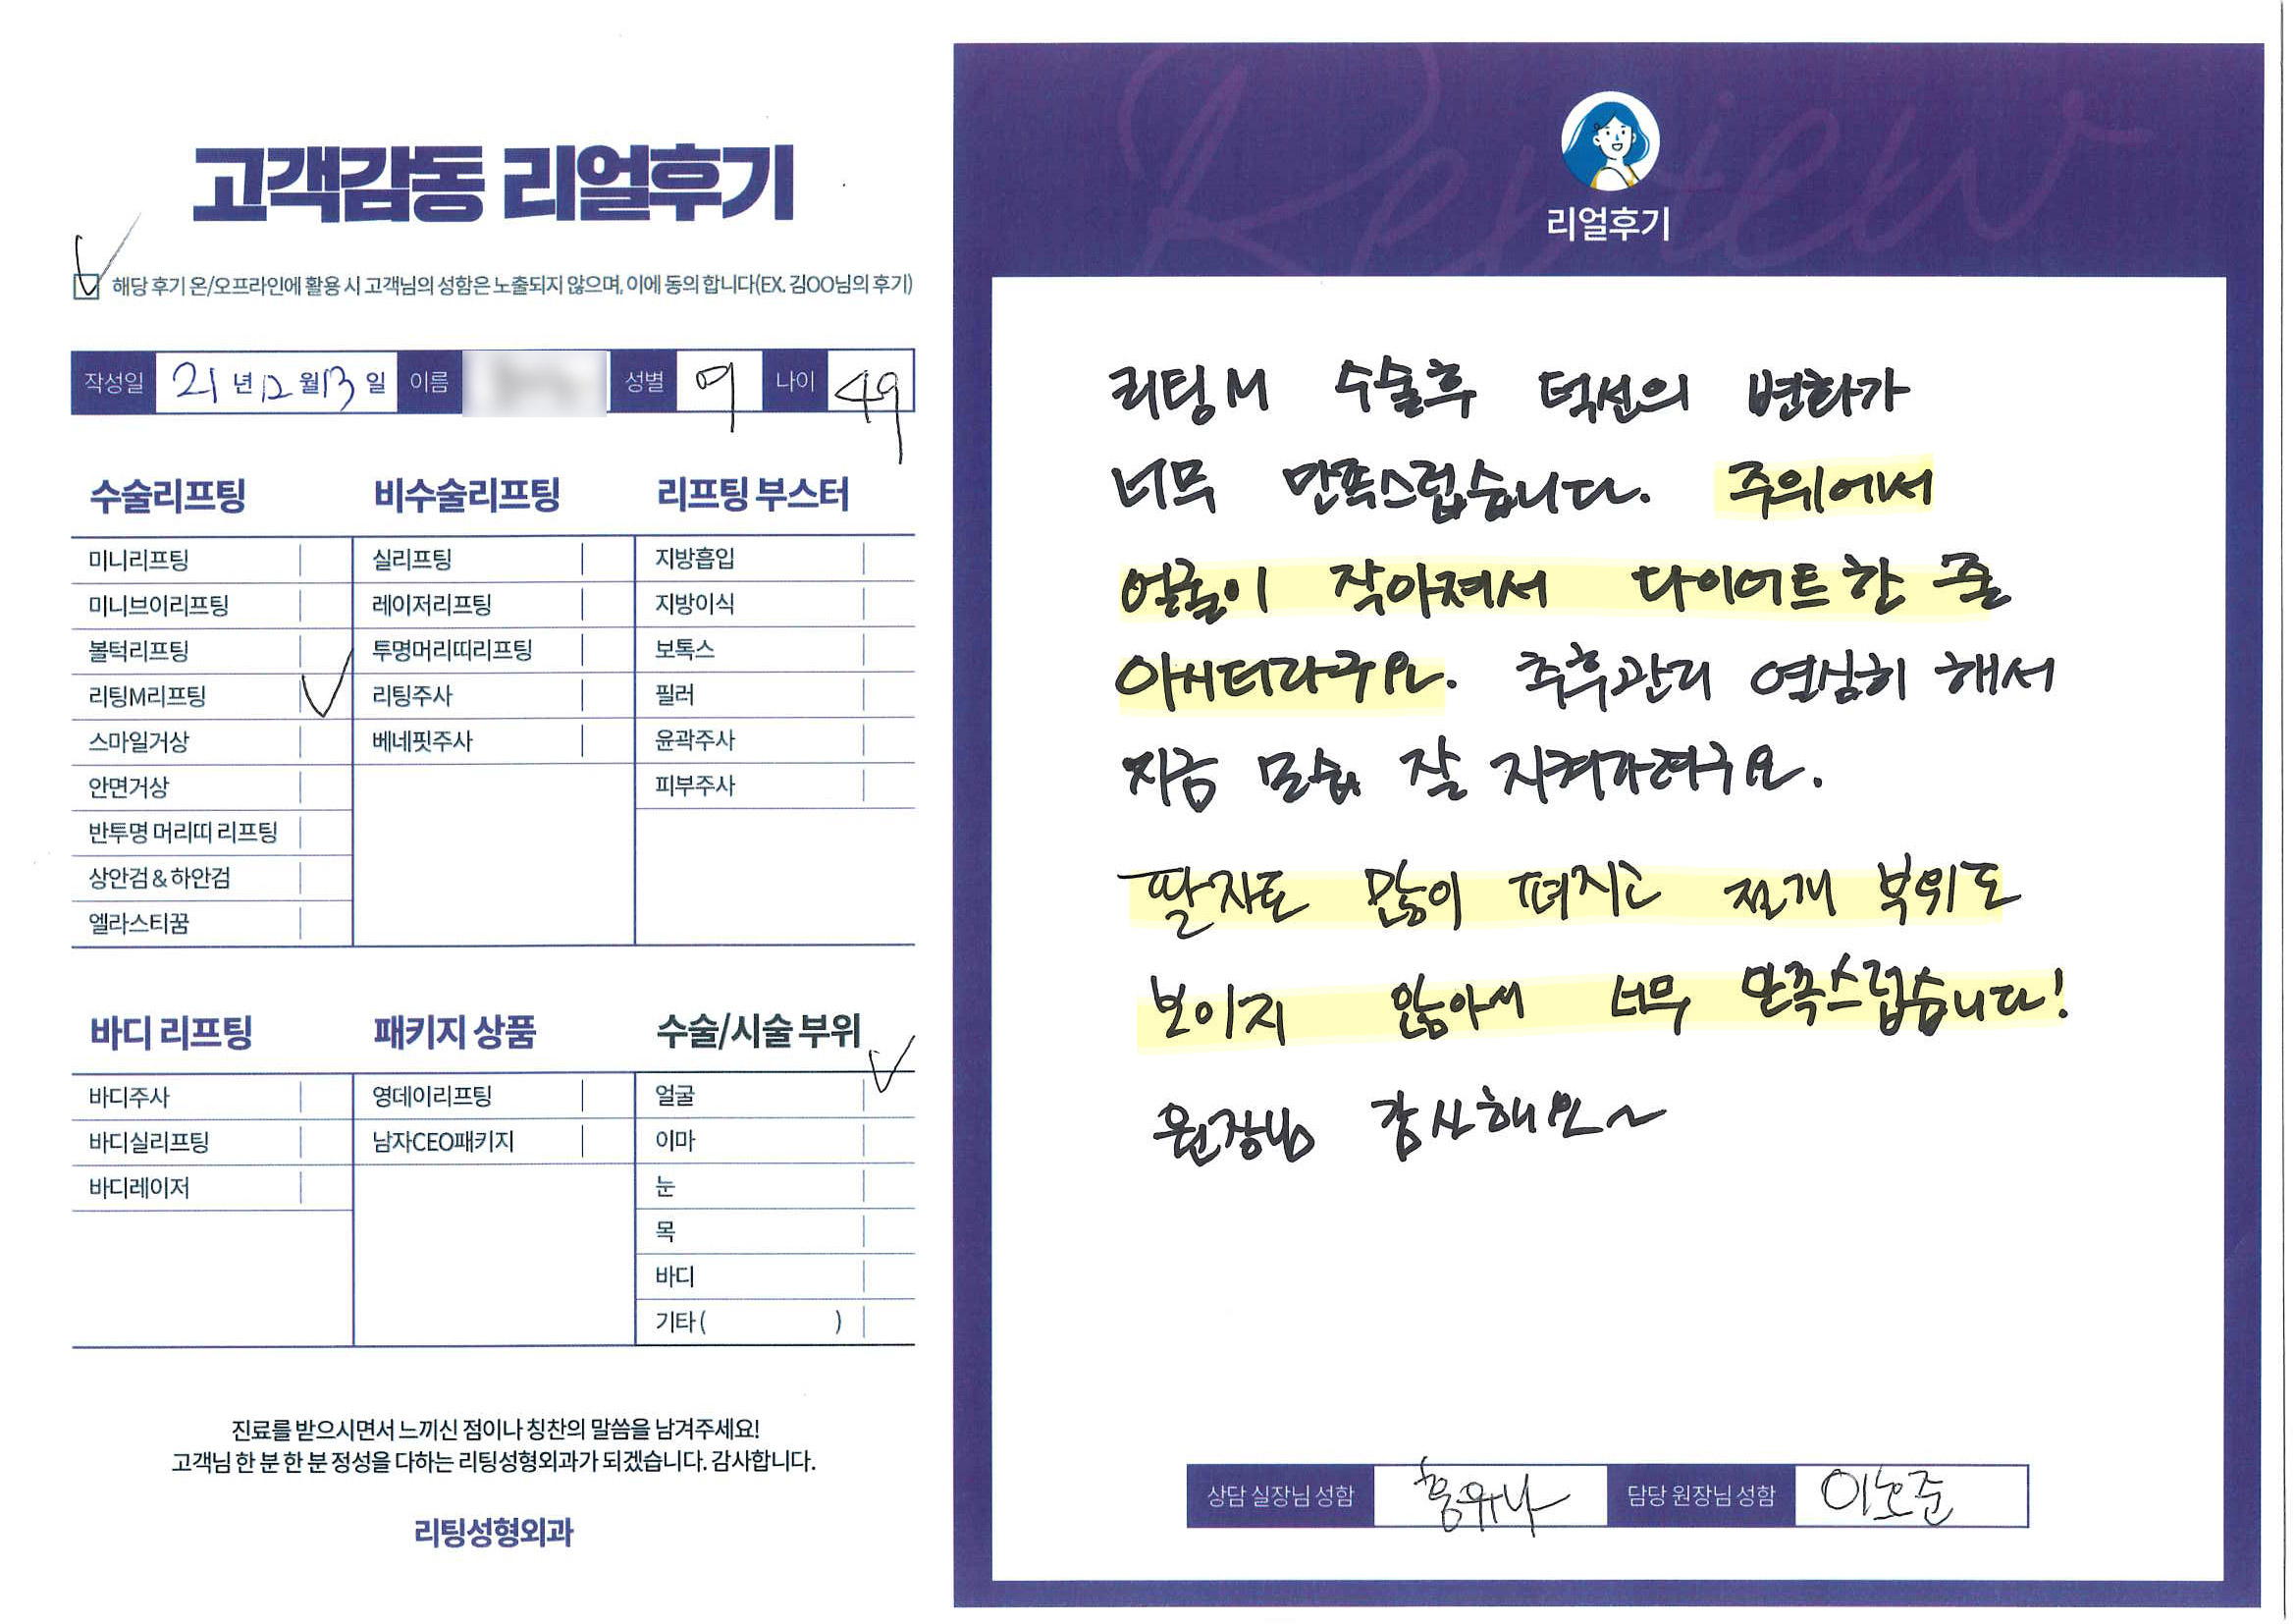 고객감동 리얼후기
해당 후기 온/오프라인에 활용 시 고객님의 성함은 노출되지 않으며, 이에 동의 합니다(EX. 김OO님의 후기)
작성일 21년 12월 13일 이름 성별 여 나이 49
수술리프팅
미니리프팅
미니브이리프팅
볼턱리프팅
리팅M리프팅
스마일거상
안면거상
반투명 머리띠 리프팅
상안검 & 하안검
엘라스티꿈
비수술리프팅
실리프팅
레이저리프팅
투명머리띠리프팅
리팅주사
베네핏주사
리프팅 부스터
지방흡입
지방이식
보톡스
필러
윤곽주사
피부주사
바디 리프팅
바디주사
바디실리프팅
바디레이저
패키지 상품
영데이리프팅
남자CEO패키지
수술/시술 부위
얼굴
이마
눈
목
바디
기타 ( )
진료를 받으시면서 느끼신 점이나 칭찬의 말씀을 남겨주세요!
고객님 한 분 한 분 정성을 다하는 리팅성형외과가 되겠습니다. 감사합니다.
리팅성형외과
Review
리얼후기
리팅M 수술후 턱선의 변화가
너무 만족스럽습니다. 주위에서
얼굴이 작아져서 다이어트한 줄
아시더라구요. 추후관리 열심히 해서
지금 모습 잘 지켜가려구요.
팔자도 많이 펴지고 절개 부위도
보이지 않아서 너무 만족스럽습니다!
원장님 감사해요~
상담 실장님 성함 홍유나 담당 원장님 성함